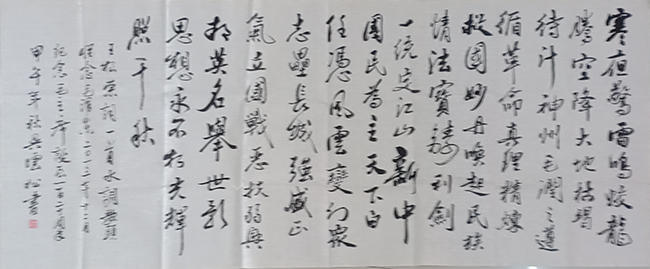 寒夜驚雷鳴蛟龍
騰空降大地枯竭
待汁神州毛潤之遵
循革命真理精煉
救國妙丹喚起民族
情法寶鑄利劍
一統定江山新中
國民為主天下白
任憑風雲變幻衆
志壘長城強盛正
氣立國戰惡扶弱興
邦英名舉世彰
思想永不朽光輝
照千秋
王松詞一首水調歌頭
懷念毛澤東二〇一三年十二月
紀念毛主席誕辰一百二十周年
甲午年秋吳松書